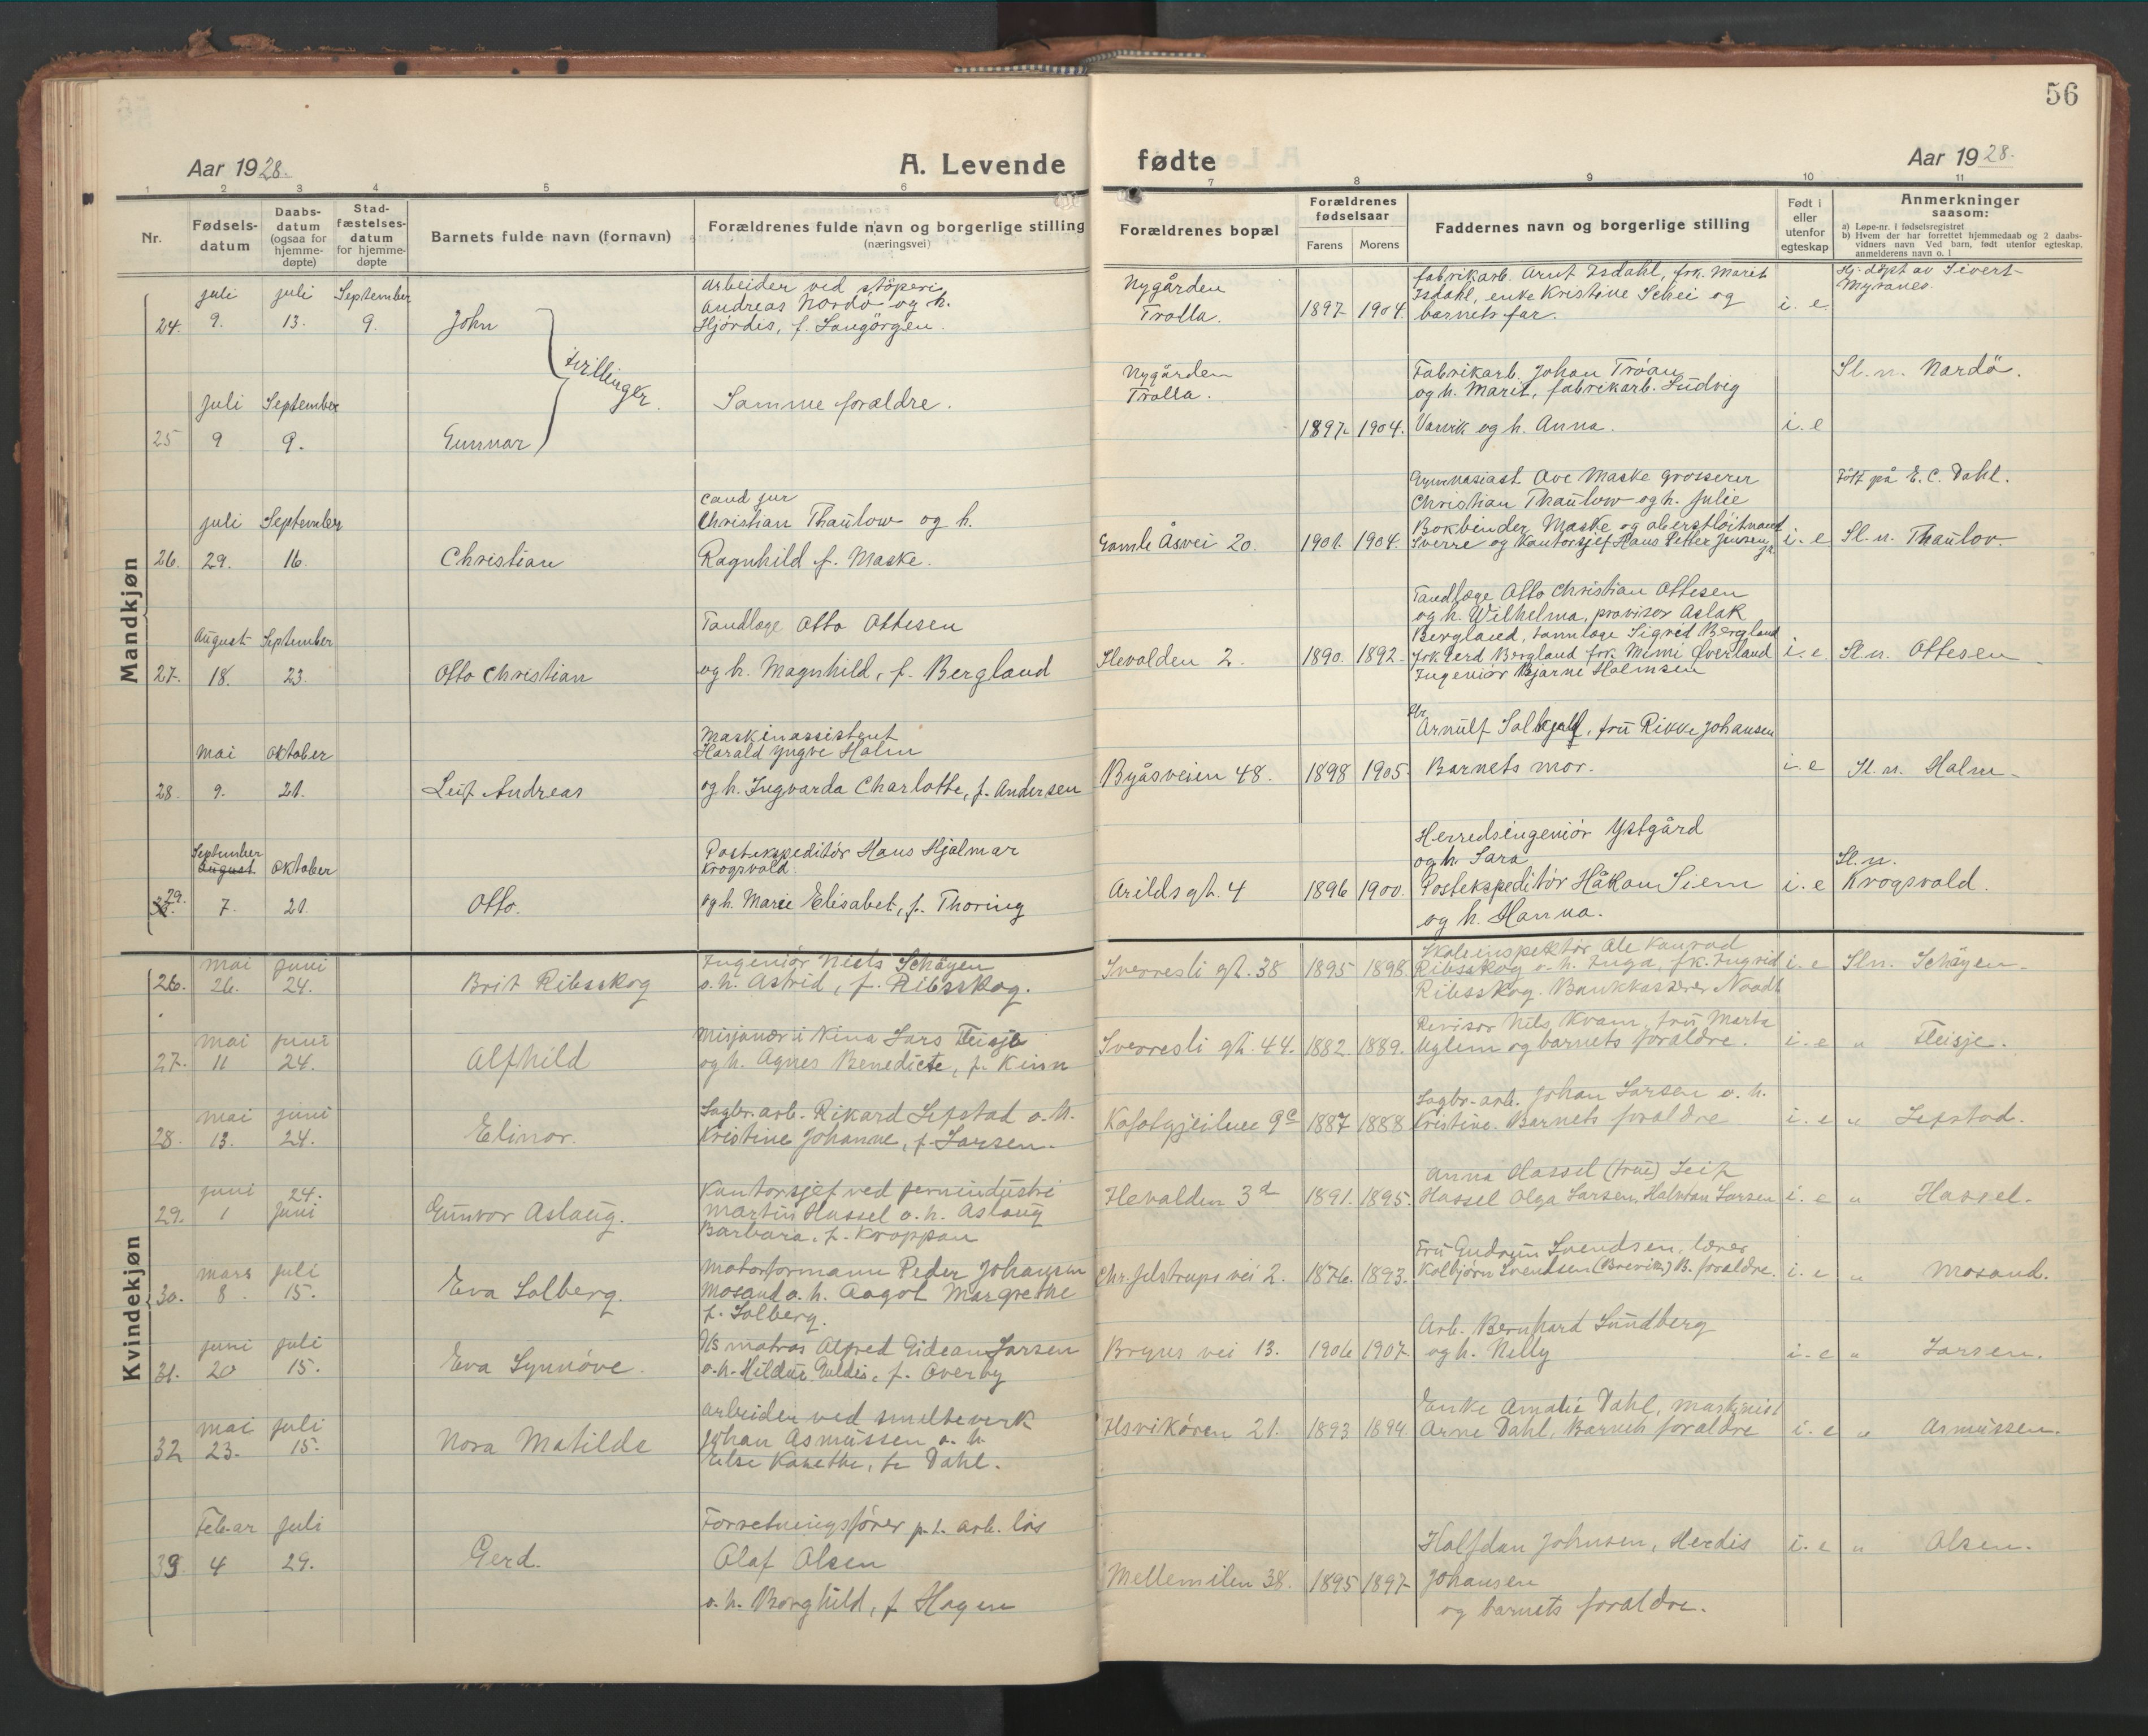 56
Aar 1928.
A. Levende fødte
Aar 1928.
1 2 3 4 5 6 7 8 9 10 11
Nr.
Fødsels-
datum
Daabs-
datum
(ogsaa for
hjemme-
døpte)
Stad-
fæstelses-
datum
for hjemme-
døpte
Barnets fulde navn (fornavn)
Forældrenes fulde navn og borgerlige stilling
(næringsvei)
Forældrenes bopæl
Forældrenes
fødselsaar
Farens Morens
Faddernes navn og borgerlige stilling
Født i
eller
utenfor
egteskap
Anmerkninger
saasom:
a) Løpe-nr. i fødselsregistret
b) Hvem der har forrettet hjemmedaab og 2 daabs-
vidners navn Ved barn, født utenfor egteskap,
anmelderens navn o. l
Mandkjøn
juli juli September
24. 9. 13. 9. John
Arbeider ved støperi
Andreas Nordø og h.
Hjördis, f. Langörgen.
Nygården
Trolla.
1897 1904.
fabrikarb. Arnt Isdahl, frk. Marit
Isdahl, enke Kristine Schei og
barnets far.
i. e.
Hj. döpt av Sivert
tvillinger.
juli September
25 9 9. Gunnar
Samme foraldre.
Nygården
Trolla.
1897. 1904.
Fabrikarb. Johan Tröan
og h. Marit, fabrikarb. Ludvig
Varvik og h. Anna.
i. e
Sl. n. Nardö.
juli September
26. 29. 16. Christian
Cand jur
Christian Thaulow og h.
Ragnhild f. Maske.
Gamle Åsvei 20.
1901. 1904.
Gymnasiast. Ove Maske grosserer
Christian Thaulow og h. Julie
Bokbinder Maske og oberstløitnant
Sverre og Kontorsjef Hans Petter Jensen jr.
i. e
Født på E. C. Dahl.
Sl. n. Thaulov.
August September
27. 18. 23. Otto Christian
Tandlæge Otto Ottesen
og h. Magnhild, f. Bergland
Ilevolden 2.
1890. 1892.
Tandlæge Otto Christian Ottesen
og h. Wilhelma, provisor Aslak
Bergland, tannlæge Sigrid Bergland
frk. Gerd Bergland frk. Mimi Øverland
Ingeniör Bjarne Holmsen
i. e
Sl. n. Ottesen
mai Oktober
28. 9. 21. Leif Andreas
Maskinassistent
Harald Yngve Holm
og h. Ingvarda Charlotte, f. Andersen
Byåsveien 48.
1898 1905.
Arnulf, fru Rikke Johansen
Barnets mor.
i. e
Sl. n. Holm
September
August Oktober
29. 7. 21. Otto.
Postekspeditör Hans Hjalmar
Krogsvold.
og h. Marie Elisabet, f. Thoring
Arilds gt. 4
1896 1900.
Herredsingeniör Ystgård
og h. Sara
Postekspeditör Håkon Siem
og h. Hanna.
i. e
Sl. n.
Krogsvold.
Kvindekjøn
mai juni
26. 26. 24. Brit Ribsskog
Ingeniör Niels Schöyen
o. h. Astrid, f. Ribsskog.
Sverresli gt. 38
1895 1898
Skoleinspektör Ole Konrad
Ribsskog o. h. Inga, frk. Ingrid
Ribsskog. Bankkasserer
i. e
Sln. Schöyen.
mai juni
27. 11 24. Alfhild
Misjonær i Kina Lars Fleisje
og h. Agnes Benedicte, f. Kinn
Sverresli gt. 44.
1882. 1889.
Revisor Nils Kvam, fru Marta
Uglem og barnets foraldre.
i. e
" Fleisje.
mai juni
28. 13. 24. Elinor.
Sagbr. arb. Rikard Lefstad o. h.
Kristine Johanne, f. Larsen.
1887 1888
Sagbr- arb. Johan Larsen o. h.
Kristine. Barnets foraldre
i. e
" Lefstad.
juni 24.
29. 1 juni Gunvor Aslaug.
Kontorsjef ved jernindustri
Martin Hassel o. h. Aslaug
Barbara, f. Kroppan
Ilevolden 3d
1891. 1895.
Anna Hassel (frue) Leif
Hassel Olga Larsen, Halvdan Larsen
i. e
" Hassel.
mars juli
30. 8. 15. Eva Solberg.
Motorformann Peder Johansen
Mosand o. h. Aagot Margrethe
f. Solberg.
Chr. Jelstrups vei 2.
1876. 1893.
Fru Gudrun Svendsen, lærer
Kolbjørn Svendsen (Brevik) B. foraldre.
i. e
" Mosand.
juni juli
31. 20 15. Eva Synnöve.
matros Alfred Gideon Larsen
o. h. Hildur Guldis, f. Overby
Bryns vei 13.
1906 1907.
Arb. Bernhard Sundberg
og h. Nelly
i. e
" Larsen.
mai juli
32 23. 15. Nora Matilde
arbeider ved smelteverk
Johan Asmussen o. h.
Else Kanethe, f. Dahl.
Ilsvikören 21.
1893 1894.
Enke Amalie Dahl, maskinist
Arne Dahl, Barnets foraldre
i. e
" Asmussen.
Feb-ar juli
33 4 29. Gerd.
Forretningsförer p. t. arb. lös
Olaf Olsen
o. h. Borghild, f. Hagen
Mellemilen 38.
1895 1897
Halfdan Johnsen, Herdis
Johansen
og barnets foraldre.
i. e
" Olsen.